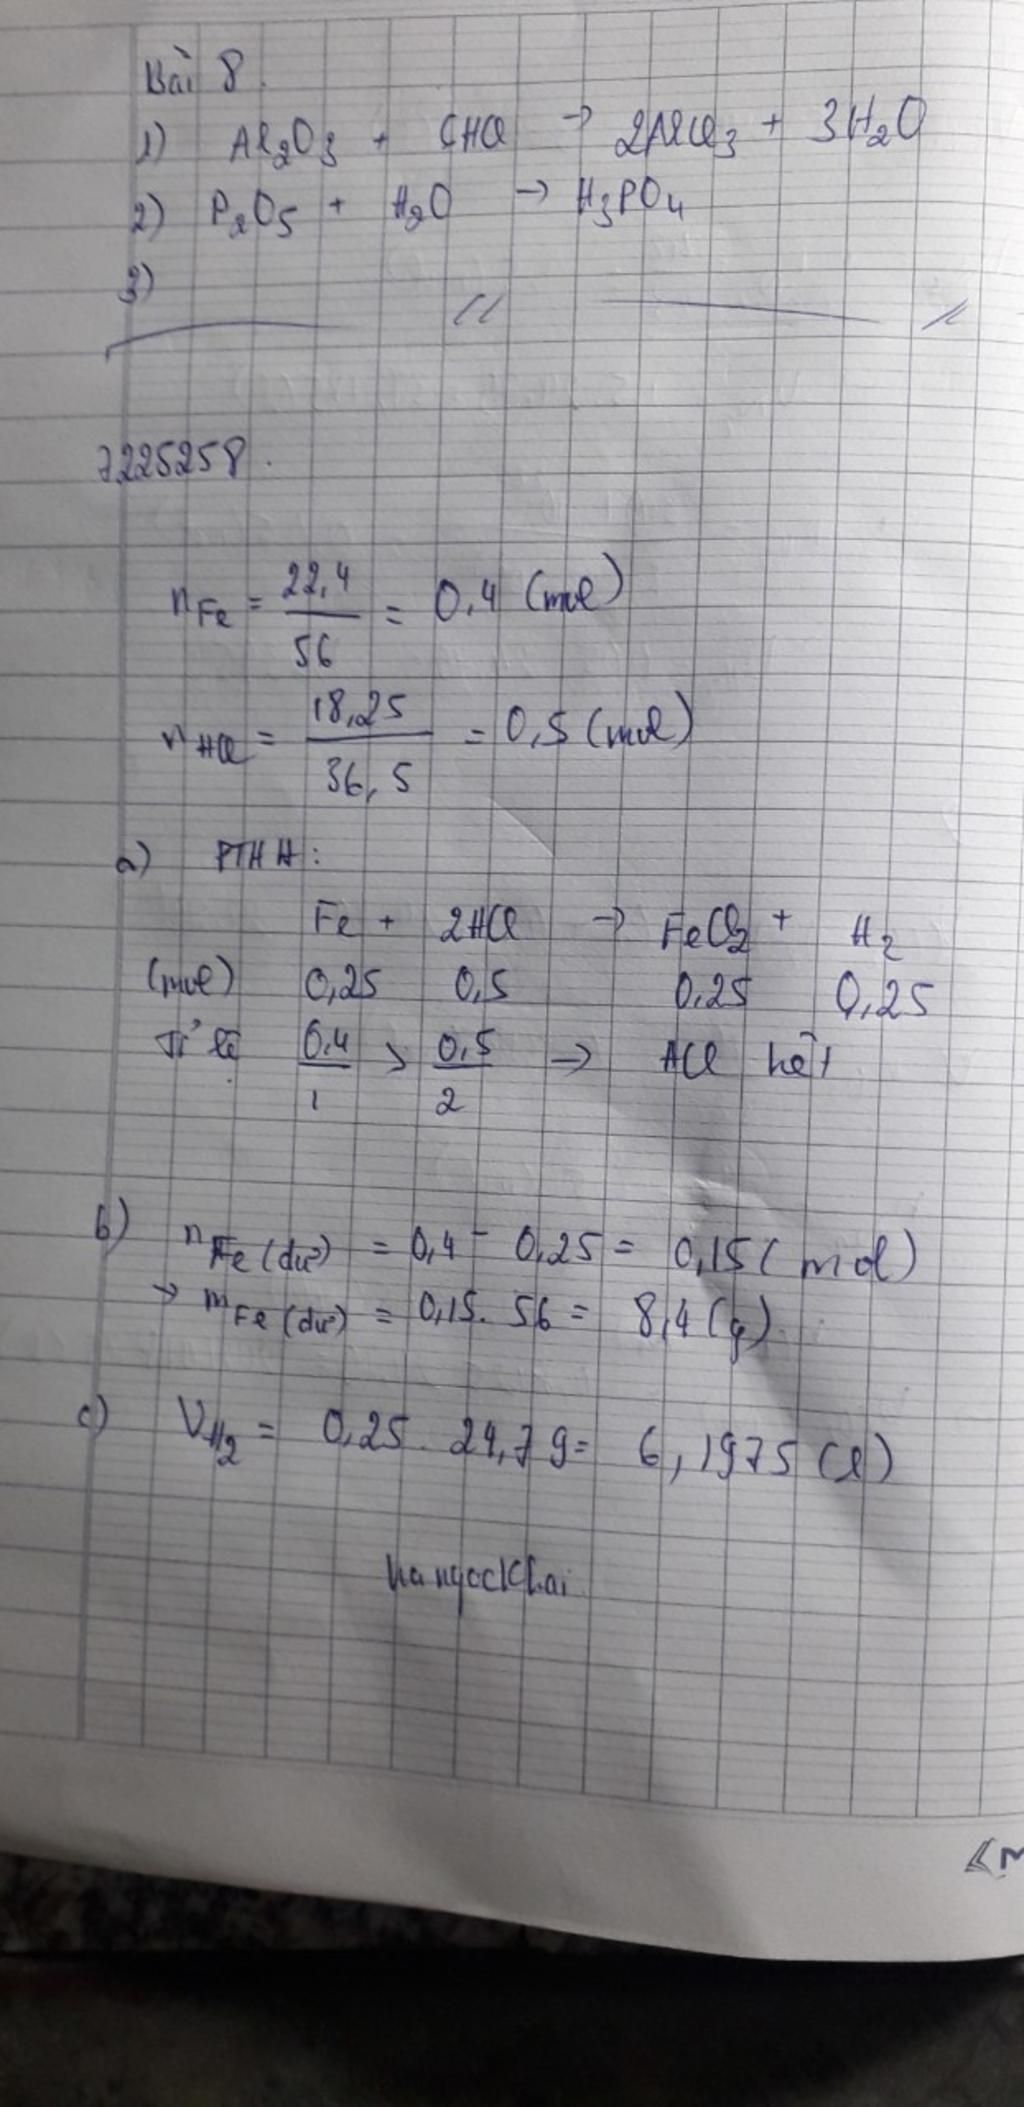 Bài 8.
1) Al2O3 + 6HCl → 2AlCl3 + 3H2O
2) P2O5 + H2O → H3PO4
3)
7225258.
nFe = 22,4/56 = 0,4 (mol)
nHCl = 18,25/36,5 = 0,5 (mol)
a) PTHH:
Fe + 2HCl → FeCl2 + H2
(mol) 0,25 0,5 0,25 0,25
Tỉ lệ 0,4/1 > 0,5/2 → HCl hết
b) nFe (dư) = 0,4 - 0,25 = 0,15 (mol)
→ mFe (dư) = 0,15. 56 = 8,4 (g)
c) VH2 = 0,25. 24,79 = 6,1975 (l)